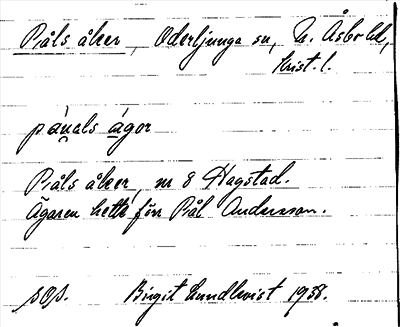 Påls åker, Oderljunga sn, N. Åsbo hd,
Krist. l.
páuals ágor
Påls åker, nr 8 Hagstad.
Ägaren hette förr Pål Andersson.
Birgit Lundkvist 1938.